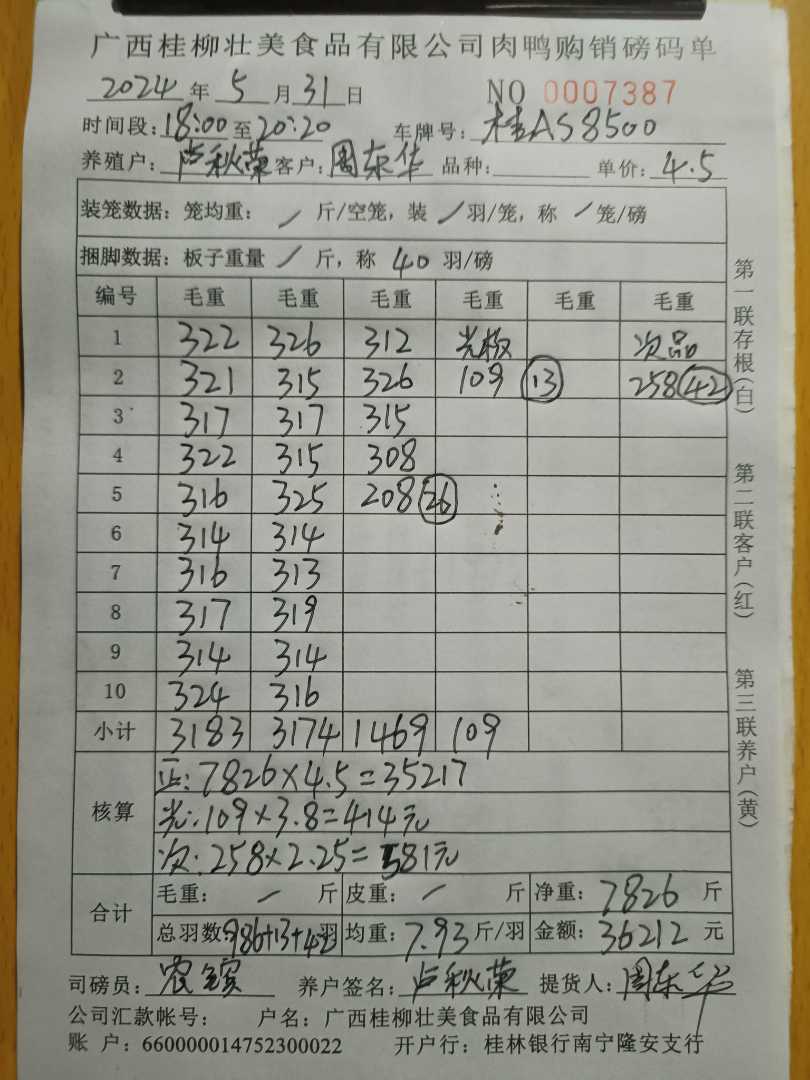 广西桂柳壮美食品有限公司肉鸭购销磅码单
2024年5月31日 NO 0007387
时间段:18:00至20:20 车牌号:桂AS8500
养殖户:卢秋荣 客户:周东华 品种: 单价:4.5
装笼数据:笼均重: / 斤/空笼,装 / 羽/笼,称 / 笼/磅
捆脚数据:板子重量 / 斤,称 40 羽/磅
编号 毛重 毛重 毛重 毛重 毛重 毛重
1 322 326 312 光板 次品
2 321 315 326 109 13 258 42
3 317 317 315
4 322 315 308
5 316 325 208 26
6 314 314
7 316 313
8 317 319
9 314 314
10 324 316
小计 3183 3174 1469 109
核算
正:7826×4.5=35217
光:109×3.8=414元
次:258×2.25=581元
合计
毛重: / 斤 皮重: / 斤 净重:7826斤
总羽数:986+13+42羽 均重:7.93斤/羽 金额:36212元
司磅员: 养户签名:卢秋荣 提货人:周东华
公司汇款帐号: 户名:广西桂柳壮美食品有限公司
账 户:660000014752300022 开户行:桂林银行南宁隆安支行
第一联存根(白)
第二联客户(红)
第三联养户(黄)